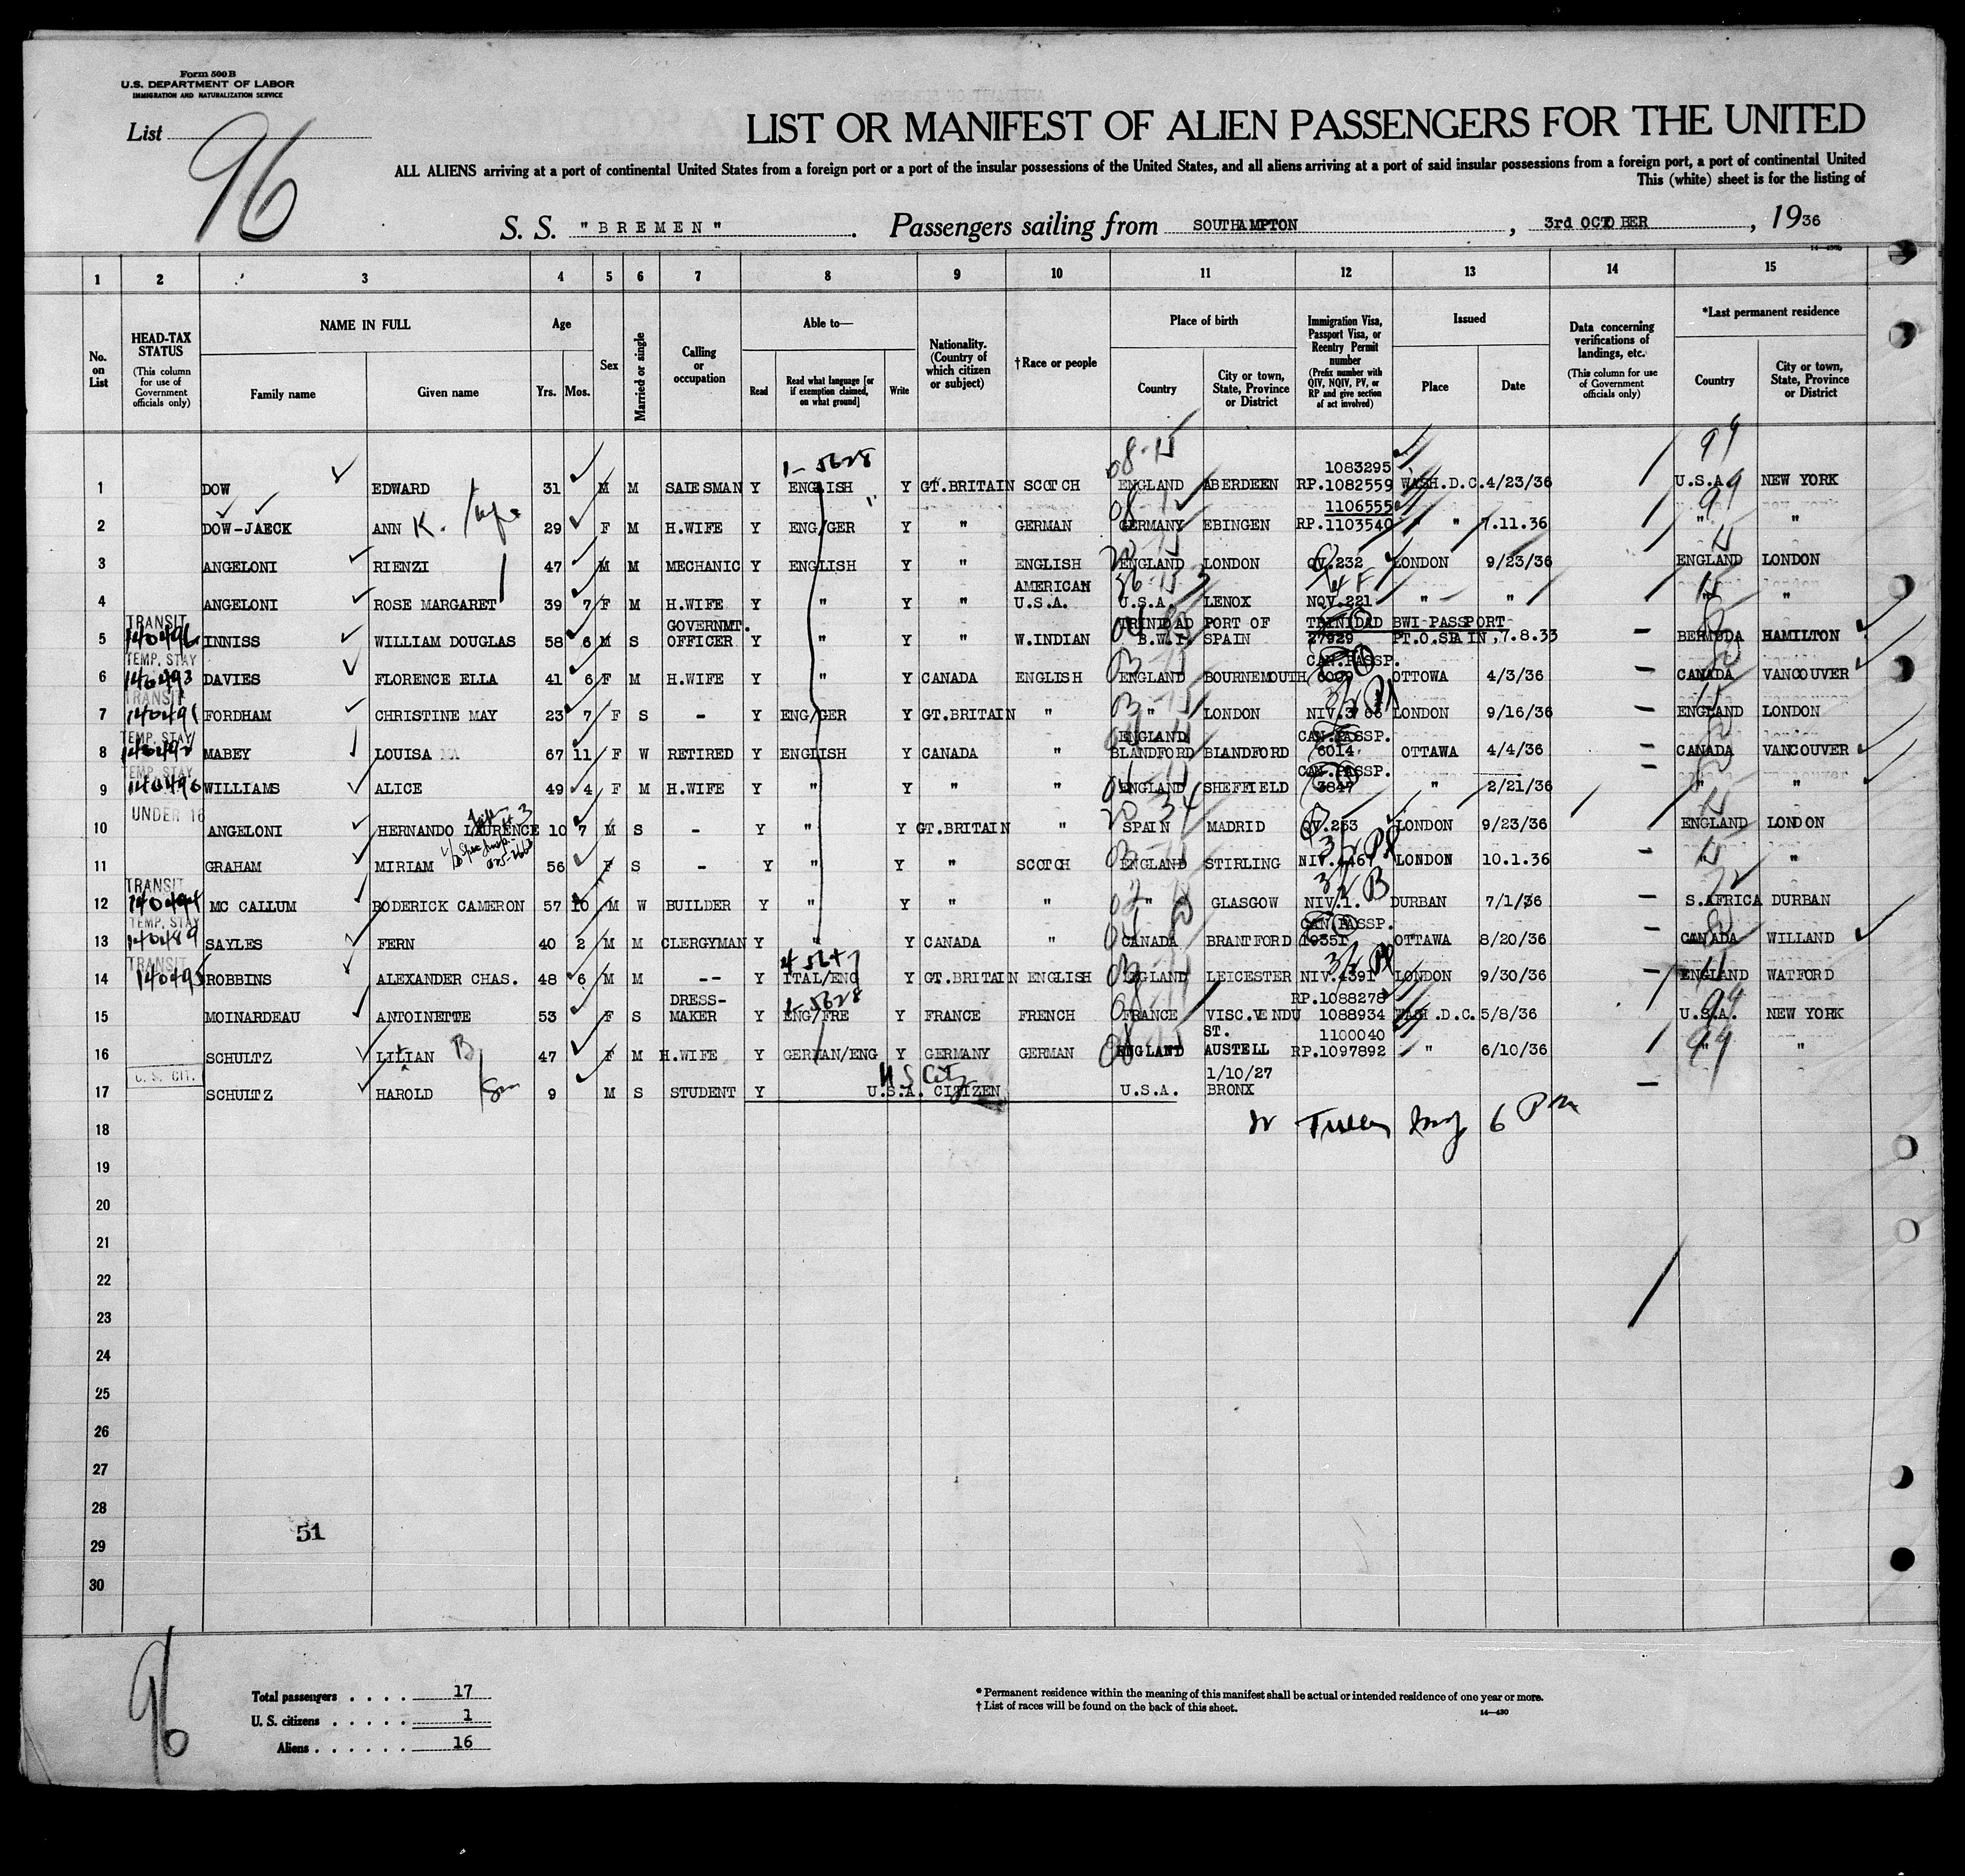 Form 500 B
U.S. DEPARTMENT OF LABOR
IMMIGRATION AND NATURALIZATION SERVICE
List 96
LIST OR MANIFEST OF ALIEN PASSENGERS FOR THE UNITED
ALL ALIENS arriving at a port of continental United States from a foreign port or a port of the insular possessions of the United States, and all aliens arriving at a port of said insular possessions from a foreign port, a port of continental United
This (white) sheet is for the listing of
S. S. "BREMEN" . Passengers sailing from SOUTHAMPTON , 3rd OCTOBER , 1936
1 2 3 4 5 6 7 8 9 10 11 12 13 14 15
No. on List
HEAD-TAX STATUS (This column for use of Government officials only)
NAME IN FULL Family name Given name
Age Yrs. Mos.
Sex
Married or single
Calling or occupation
Able to— Read Read what language [or if exemption claimed, on what ground] Write
Nationality. (Country of which citizen or subject)
†Race or people
Place of birth Country City or town, State, Province or District
Immigration Visa, Passport Visa, or Reentry Permit number (Prefix number with QIV, NQIV, PV, or RP and give section of act involved)
Issued Place Date
Data concerning verifications of landings, etc. (This column for use of Government officials only)
*Last permanent residence Country City or town, State, Province or District
1-5628 08-15 1083295 99
1 DOW EDWARD 31 M M SALESMAN Y ENGLISH Y GT.BRITAIN SCOTCH ENGLAND ABERDEEN RP.1082559 WASH.D.C. 4/23/36 U.S.A. NEW YORK
1106555
2 DOW-JAECK ANN K. wife 29 F M H.WIFE Y ENG/GER Y " GERMAN GERMANY EBINGEN RP.1103540 " " 7.11.36 " "
3 ANGELONI RIENZI 47 M M MECHANIC Y ENGLISH Y " ENGLISH ENGLAND LONDON QV.232 LONDON 9/23/36 ENGLAND LONDON
AMERICAN
4 ANGELONI ROSE MARGARET 39 7 F M H.WIFE Y " Y " U.S.A. U.S.A. LENOX NQV.221 " " " "
TRANSIT GOVERNMT. TRINIDAD PORT OF TRINIDAD BWI PASSPORT
5 140496 INNISS WILLIAM DOUGLAS 58 6 M S OFFICER Y " Y " W.INDIAN B.W.I. SPAIN 27929 PT.O.SPAIN, 7.8.33 BERMUDA HAMILTON
TEMP. STAY CAN.PASSP.
6 140493 DAVIES FLORENCE ELLA 41 6 F M H.WIFE Y " Y CANADA ENGLISH ENGLAND BOURNEMOUTH 6009 OTTOWA 4/3/36 CANADA VANCOUVER
TRANSIT
7 140491 FORDHAM CHRISTINE MAY 23 7 F S - Y ENG/GER Y GT.BRITAIN " " LONDON LONDON 9/16/36 ENGLAND LONDON
TEMP. STAY ENGLAND CAN.PASSP.
8 140492 MABEY LOUISA 67 11 F W RETIRED Y ENGLISH Y CANADA " BLANDFORD BLANDFORD 6014 OTTAWA 4/4/36 CANADA VANCOUVER
TEMP. STAY CAN.PASSP.
9 140490 WILLIAMS ALICE 49 4 F M H.WIFE Y " Y " " ENGLAND SHEFFIELD 3847 " 2/21/36 " "
UNDER 16
10 ANGELONI HERNANDO LAURENCE 10 7 M S - Y " Y GT.BRITAIN " SPAIN MADRID QV.253 LONDON 9/23/36 ENGLAND LONDON
11 GRAHAM MIRIAM 56 F S - Y " Y " SCOTCH ENGLAND STIRLING NIV.4467 LONDON 10.1.36 " "
TRANSIT
12 140494 MC CALLUM RODERICK CAMERON 57 10 M W BUILDER Y " Y " " " GLASGOW NIV.1. DURBAN 7/1/36 S.AFRICA DURBAN
TEMP. STAY CAN.PASSP.
13 140489 SAYLES FERN 40 2 M M CLERGYMAN Y " Y CANADA " CANADA BRANTFORD 19351 OTTAWA 8/20/36 CANADA WILLAND
TRANSIT 4-5647
14 140495 ROBBINS ALEXANDER CHAS. 48 6 M M -- Y ITAL/ENG Y GT.BRITAIN ENGLISH ENGLAND LEICESTER NIV.4391 LONDON 9/30/36 ENGLAND WATFORD
DRESS- 1-5628 RP.1088278
15 MOINARDEAU ANTOINETTE 53 F S MAKER Y ENG/FRE Y FRANCE FRENCH FRANCE VISC.VENDU 1088934 WASH.D.C. 5/8/36 U.S.A. NEW YORK
ST. 1100040
16 SCHULTZ LILLIAN B 47 F M H.WIFE Y GERMAN/ENG Y GERMANY GERMAN ENGLAND AUSTELL RP.1097892 " 6/10/36 " "
U. S. CIT. US City 1/10/27
17 SCHULTZ HAROLD Son 9 M S STUDENT Y U.S.A. CITIZEN U.S.A. BRONX
18 6 Pm
19
20
21
22
23
24
25
26
27
28
51
29
30
96
Total passengers . . . . 17
U. S. citizens . . . . . 1
Aliens . . . . . . 16
* Permanent residence within the meaning of this manifest shall be actual or intended residence of one year or more.
† List of races will be found on the back of this sheet.
14—430